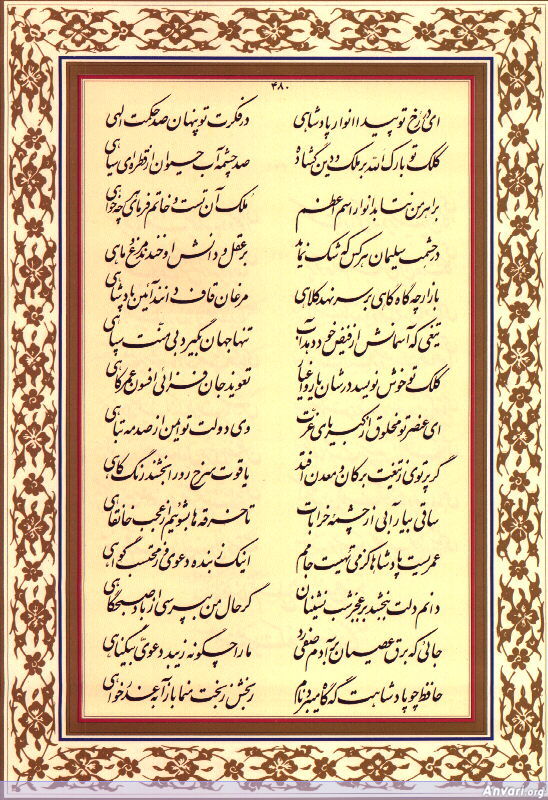 ۴۸۰
ای در رخ تو پیدا انوار پادشاهی در فکرت تو پنهان صد حکمت الهی
کلک تو بارک الله بر ملک و دین گشاده صد چشمه آب حیوان از قطره‌ای سیاهی
بر اهرمن نتابد انوار اسم اعظم ملک آن تست و خاتم فرمای هر چه خواهی
در حشمت سلیمان هر کس که شک نماید بر عقل و دانش او خندند مرغ و ماهی
باز ار چه گاه گاهی بر سر نهد کلاهی مرغان قاف دانند آئین پادشاهی
تیغی که آسمانش از فیض خود دهد آب تنها جهان بگیرد بی منت سپاهی
کلک تو خوش نویسد در شان یار و اغیار تعویذ جان فزائی افسون عمر کاهی
ای عنصر تو مخلوق از کیمیای عزت وی دولت تو ایمن از صدمه تباهی
گر پرتوی ز تیغت بر کان و معدن افتد یاقوت سرخ رو را بخشند رنگ کاهی
ساقی بیار آبی از چشمه خرابات تا خرقه‌ها بشوئیم از عجب خانقاهی
عمریست پادشاها کز می تهیست جامم اینک ز بنده دعوی وز محتسب گواهی
دانم دلت ببخشد بر عجز شب نشینان گر حال من بپرسی از باد صبحگاهی
جائی که برق عصیان بر آدم صفی زد ما را چگونه زیبد دعوی بیگناهی
حافظ چو پادشاهت گه گاه میبرد نام رنجش ز بخت منما باز آ بعذر خواهی
Anvari.org